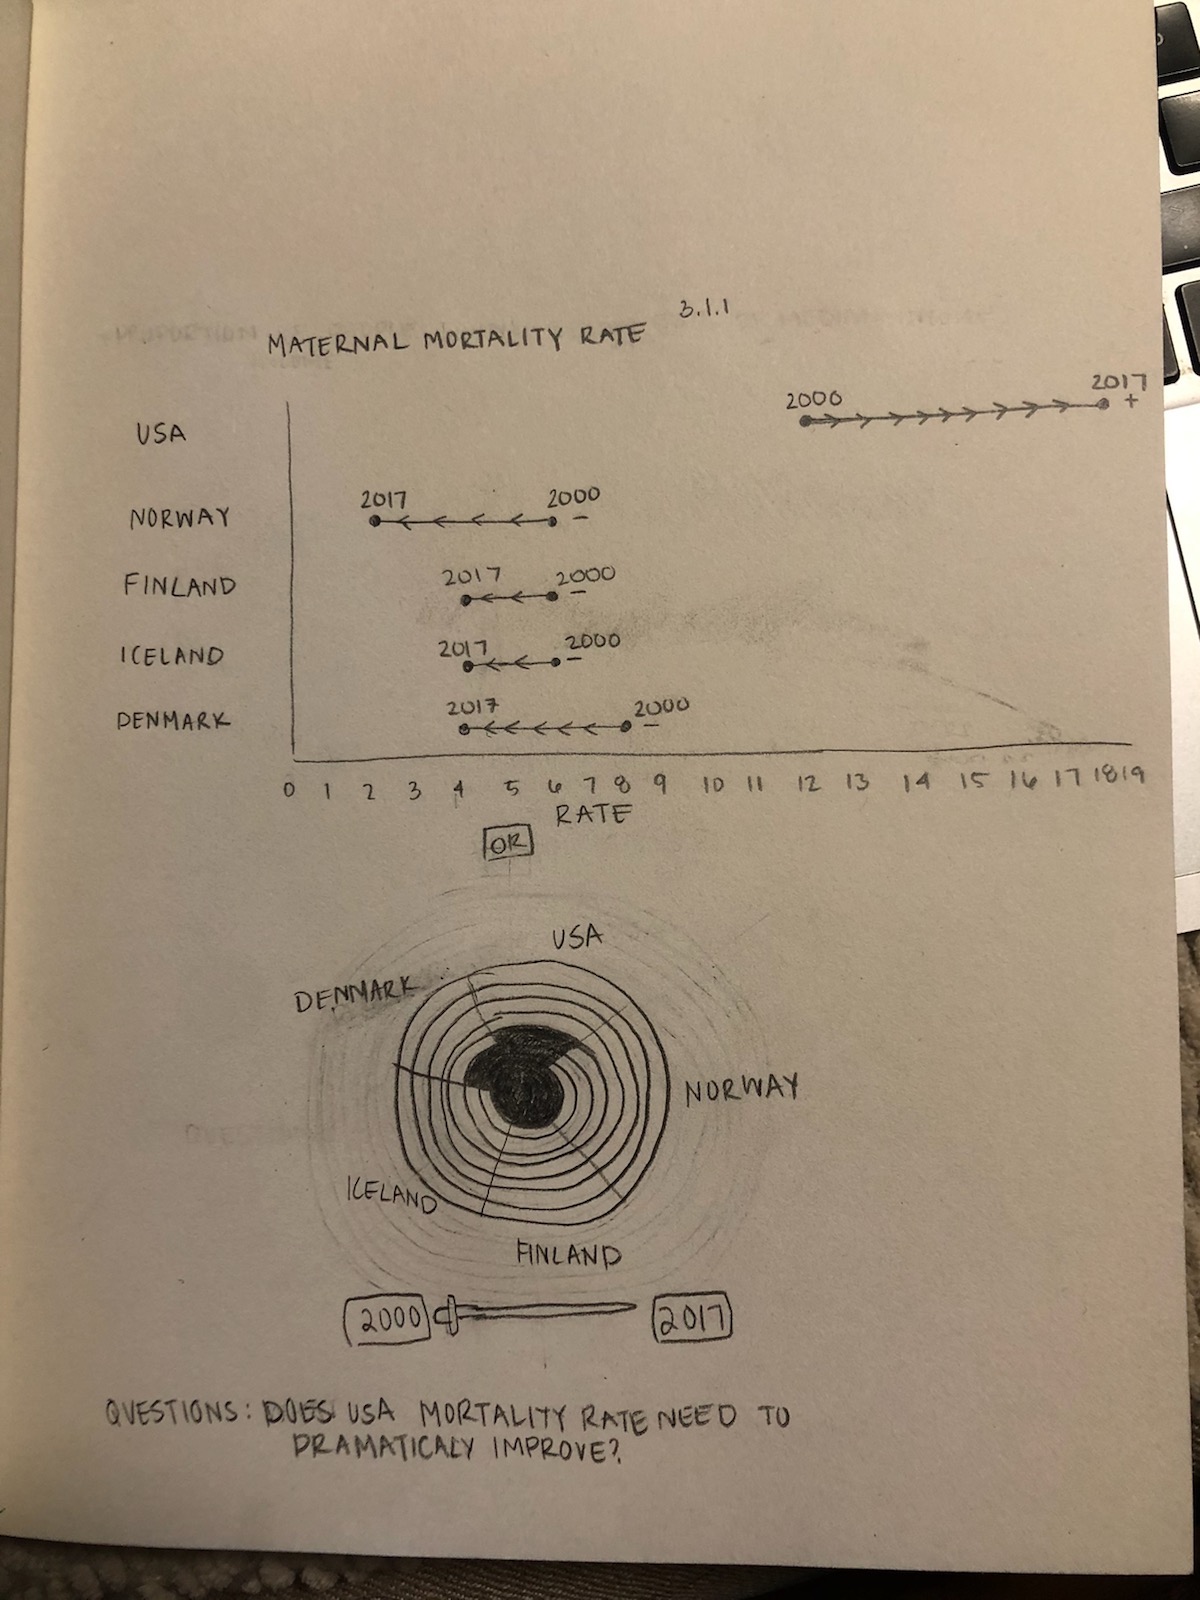 3.1.1
MATERNAL MORTALITY RATE
2000 2017
USA +
2017 2000
NORWAY –
2017 2000
FINLAND –
2017 2000
ICELAND –
2017 2000
DENMARK –
0 1 2 3 4 5 6 7 8 9 10 11 12 13 14 15 16 17 18 19
RATE
OR
USA
DENMARK
NORWAY
ICELAND
FINLAND
2000 2017
QUESTIONS: DOES USA MORTALITY RATE NEED TO
DRAMATICALY IMPROVE?